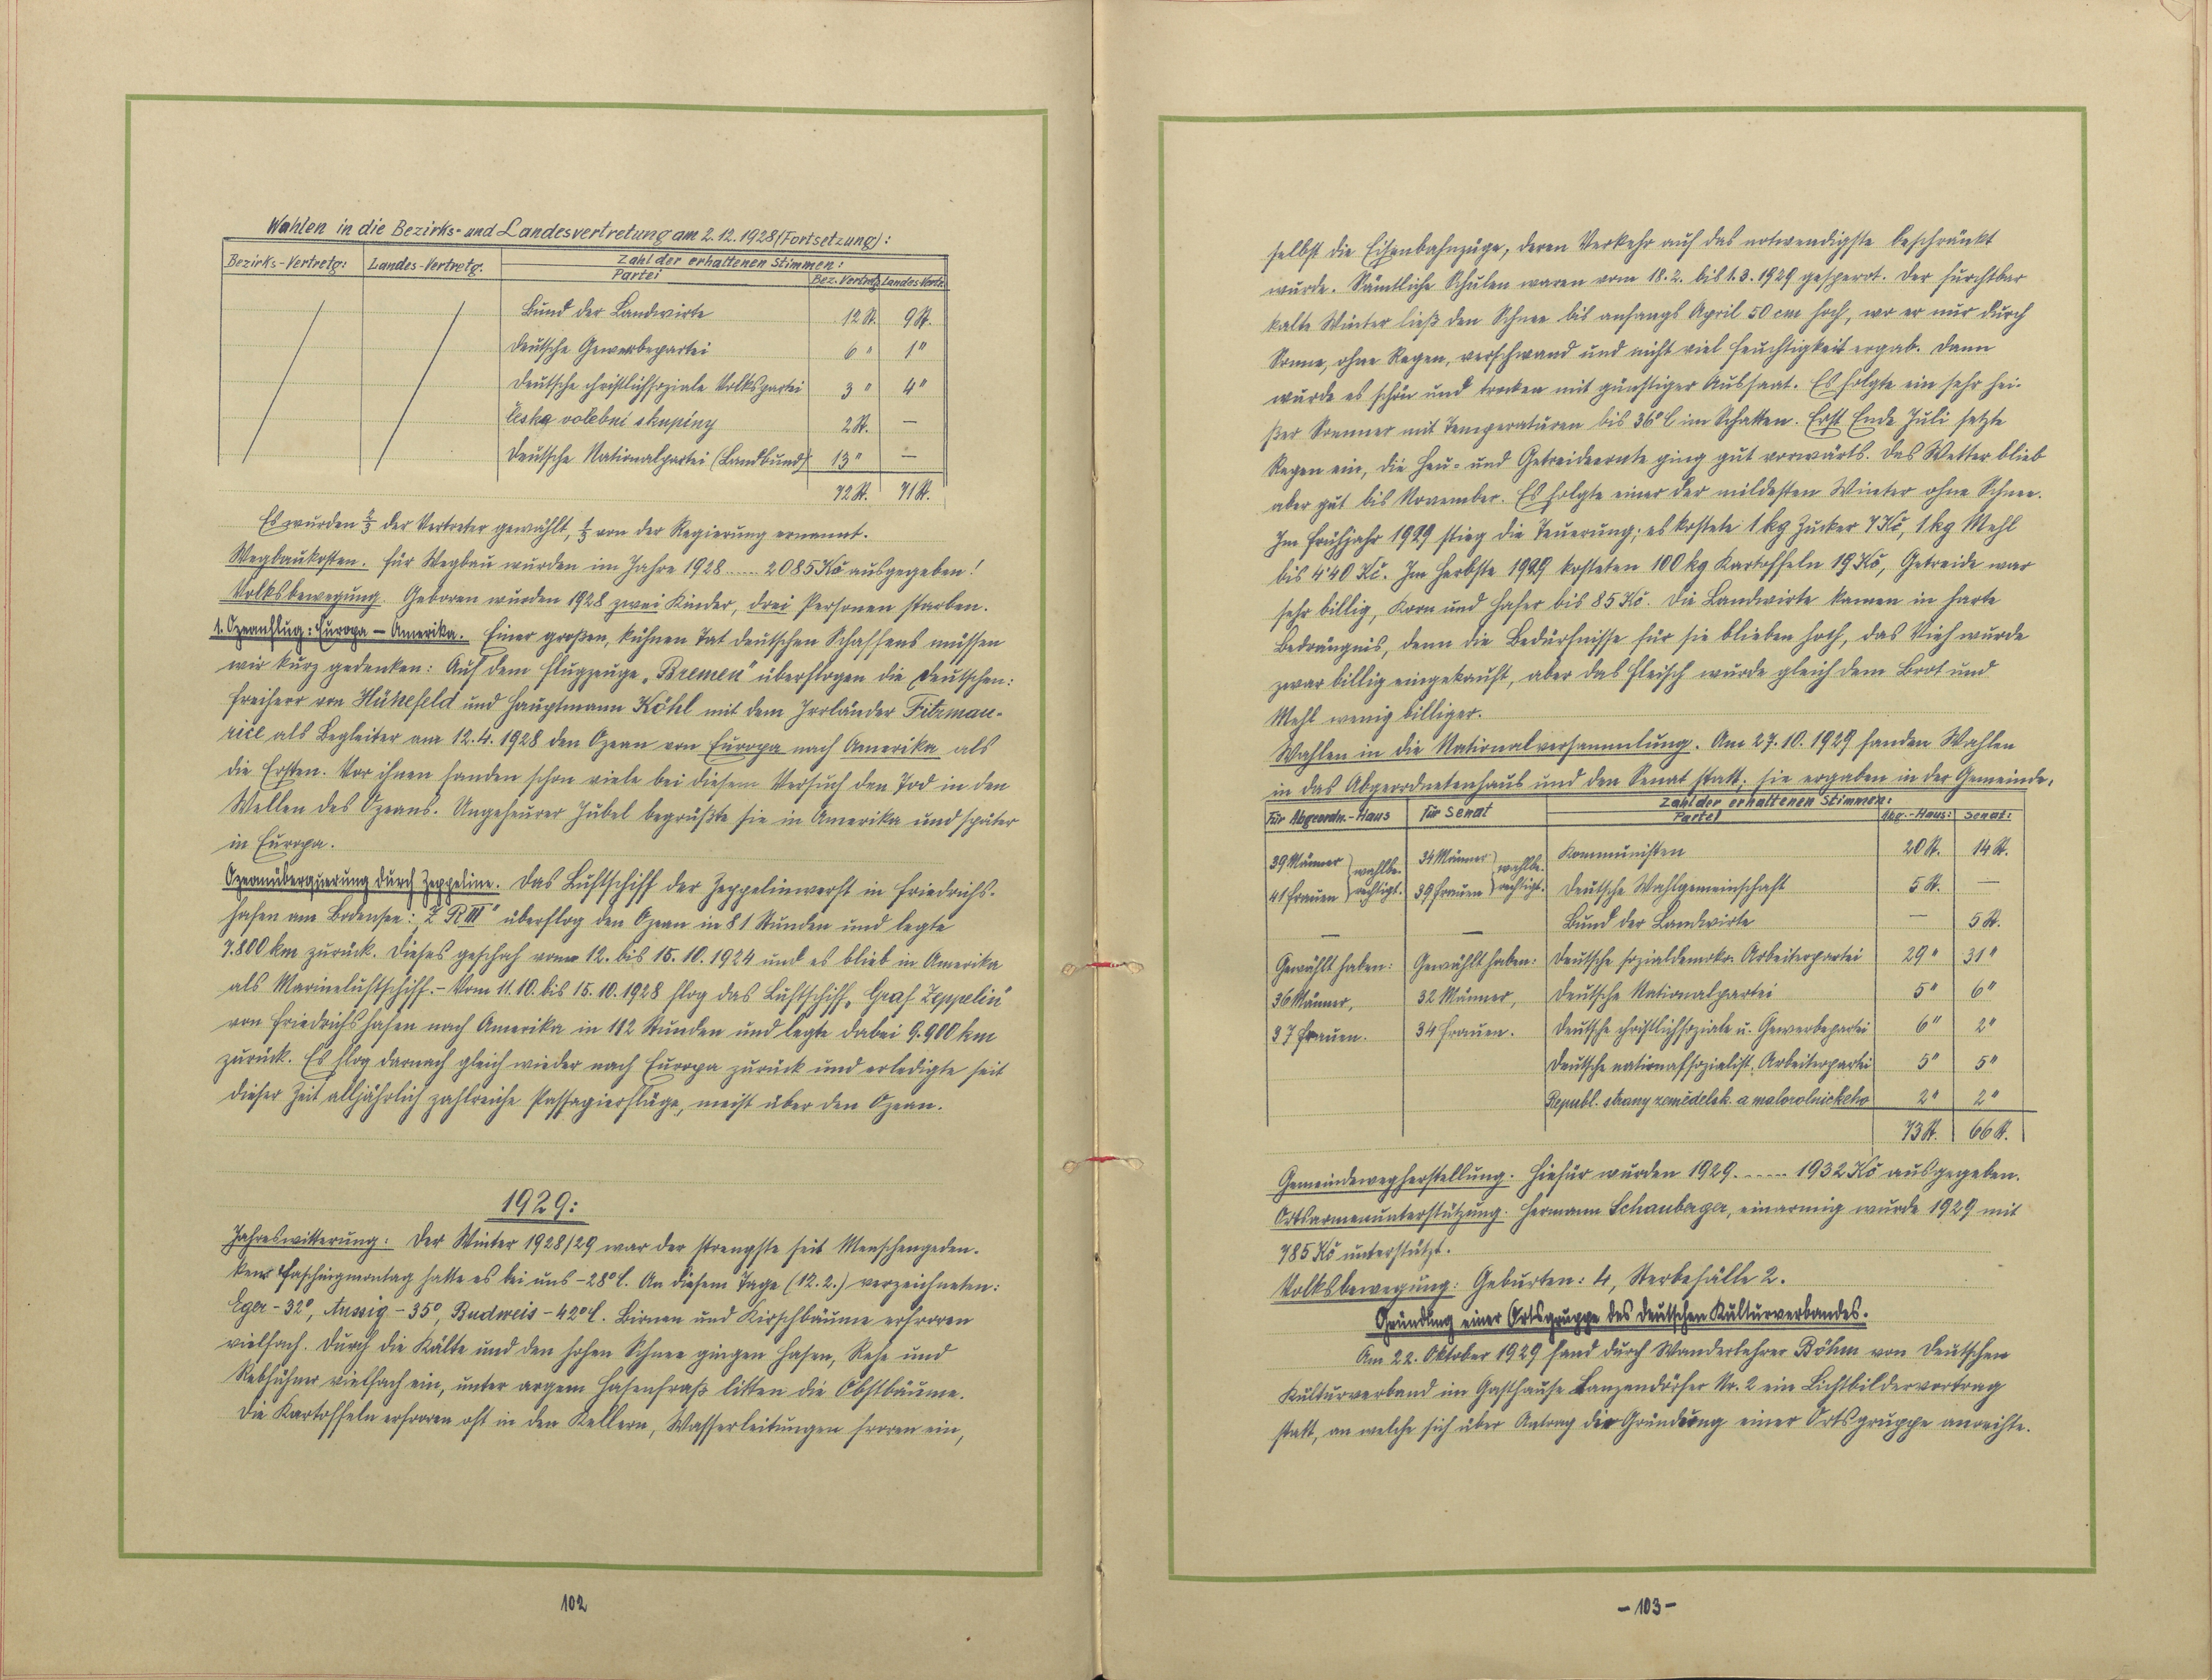 Wahlen in die Bezirks- und Landesvertretung am 2.12.1928 (Fortsetzung):
Bezirks-Vertretg: Landes-Vertretg. Zahl der erhaltenen Stimmen:
Partei Bez.Vertretg. Landes Vertr.
Bund der Landwirte 12 St. 9 St.
Deutsche Gewerbepartei 6 " 1 "
Deutsche christlichsoziale Volkspartei 3 " 4 "
Česke volební skupiny 2 St. —
Deutsche Nationalpartei (Landbund) 13 " —
72 St. 71 St.
Es wurden 2/3 der Vertreter gewählt, 1/3 von der Regierung ernannt.
Wegbaukosten. Für Wegbau wurden im Jahre 1928 ..... 2085 Kč ausgegeben!
Volksbewegung. Geboren wurden 1928 zwei Kinder, drei Personen starben.
1. Ozeanflug: Europa – Amerika. Einer großen, kühnen Tat deutschen Schaffens müssen
wir kurz gedenken: Auf dem Flugzeuge „Bremen" überflogen die Deutschen:
Freiherr von Hünefeld und Hauptmann Köhl mit dem Irrländer Fitzmau-
rice als Begleiter am 12.4.1928 den Ozean von Europa nach Amerika als
die Ersten. Vor ihnen fanden schon viele bei diesem Versuch den Tod in den
Wellen des Ozeans. Ungeheurer Jubel begrüßte sie in Amerika und später
in Europa.
Ozeanüberquerung durch Zeppeline. Das Luftschiff der Zeppelinwerft in Friedrichs-
hafen am Bodensee: „Z R III" überflog den Ozean in 81 Stunden und legte
7.800 km zurück. Dieses geschah vom 12. bis 15.10.1924 und es blieb in Amerika
als Marineluftschiff. – Vom 11.10. bis 15.10.1928 flog das Luftschiff „Graf Zeppelin"
von Friedrichshafen nach Amerika in 112 Stunden und legte dabei 9.900 km
zurück. Es flog darnach gleich wieder nach Europa zurück und erledigte seit
dieser Zeit alljährlich zahlreiche Passagierflüge, meist über den Ozean.
1929:
Jahreswitterung: Der Winter 1928/29 war der strengste seit Menschengeden-
ken. Faschingmontag hatte es bei uns –28° C. An diesem Tage (12.2.) verzeichneten:
Eger – 32°, Aussig – 35°, Budweis – 42° C. Birnen und Kirschbäume erfroren
vielfach. Durch die Kälte und den hohen Schnee gingen Hasen, Rehe und
Rebhühner vielfach ein, unter argem Hasenfraß litten die Obstbäume.
Die Kartoffeln erfroren oft in den Kellern, Wasserleitungen froren ein,
102
selbst die Eisenbahnzüge, deren Verkehr auf das notwendigste beschränkt
wurde. Sämtliche Schulen waren vom 18.2. bis 1.3.1929 gesperrt. Der furchtbar
kalte Winter ließ den Schnee bis anfangs April 50 cm hoch, wo er nur durch
Sonne, ohne Regen, verschwand und nicht viel Feuchtigkeit ergab. Dann
wurde es schön und trocken mit günstiger Aussaat. Es folgte ein sehr hei-
ßer Sommer mit Temperaturen bis 36° C im Schatten. Erst Ende Juli setzte
Regen ein, die Heu- und Getreideernte ging gut vorwärts. Das Wetter blieb
aber gut bis November. Es folgte einer der mildesten Winter ohne Schnee.
Im Frühjahr 1929 stieg die Teuerung; es kostete 1 kg Zucker 7 Kč, 1 kg Mehl
bis 4'40 Kč. Im Herbste 1929 kosteten 100 kg Kartoffeln 19 Kč, Getreide war
sehr billig, Korn und Hafer bis 85 Kč. Die Landwirte kamen in harte
Bedrängnis, denn die Bedürfnisse für sie blieben hoch, das Vieh wurde
zwar billig eingekauft, aber das Fleisch wurde gleich dem Brot und
Mehl wenig billiger.
Wahlen in die Nationalversammlung. Am 27.10.1929 fanden Wahlen
in das Abgeordnetenhaus und den Senat statt; sie ergaben in der Gemeinde:
Für Abgeordn.-Haus Für Senat Zahl der erhaltenen Stimmen:
Partei Abg.-Haus: Senat:
39 Männer 41 Frauen } wahlbe- rechtigt. 34 Männer 39 Frauen } wahlbe- rechtigt. Kommunisten 20 St. 14 St.
Deutsche Wahlgemeinschaft 5 St. —
— — Bund der Landwirte — 5 St.
Gewählt haben: Gewählt haben: Deutsche sozialdemokr. Arbeiterpartei 29 " 31 "
36 Männer, 32 Männer, Deutsche Nationalpartei 5 " 6 "
37 Frauen. 34 Frauen. Deutsche christlichsoziale u. Gewerbepartei 6 " 2 "
Deutsche nationalsozialist. Arbeiterpartei 5 " 5 "
Republ. strany zemědělsk. a malorolnickeho 2 " 2 "
73 St. 66 St.
Gemeindewegherstellung. Hiefür wurden 1929 ..... 1932 Kč ausgegeben.
Ortsarmenunterstützung. Hermann Schauberger, einarmig wurde 1929 mit
785 Kč unterstützt.
Volksbewegung: Geburten: 4, Sterbefälle 2.
Gründung einer Ortsgruppe des deutschen Kulturverbandes.
Am 22. Oktober 1929 fand durch Wanderlehrer Böhm von Deutschen
Kulturverband im Gasthause Lanzendörfer Nr. 2 ein Lichtbildervortrag
statt, an welche sich über Antrag die Gründung einer Ortsgruppe anreihte.
– 103 –